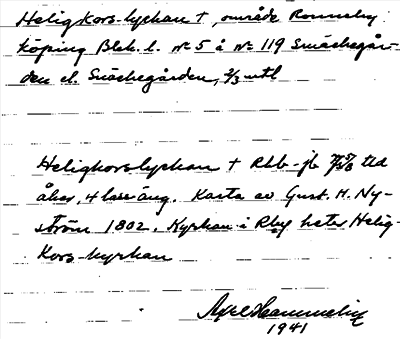 Helig Kors-lyckan +, område Ronneby
köping Blek. l. № 5 å № 119 Smäckegår-
den el. Smäckegården, 2/3 mtl
Heligkorslyckan + Rbb-jb tld
åker, 4 lass äng. Karta av Gust. M. Ny-
ström 1802. Kyrkan i Rby heter Helig-
Kors-kyrkan
Axel Hammelin
1941